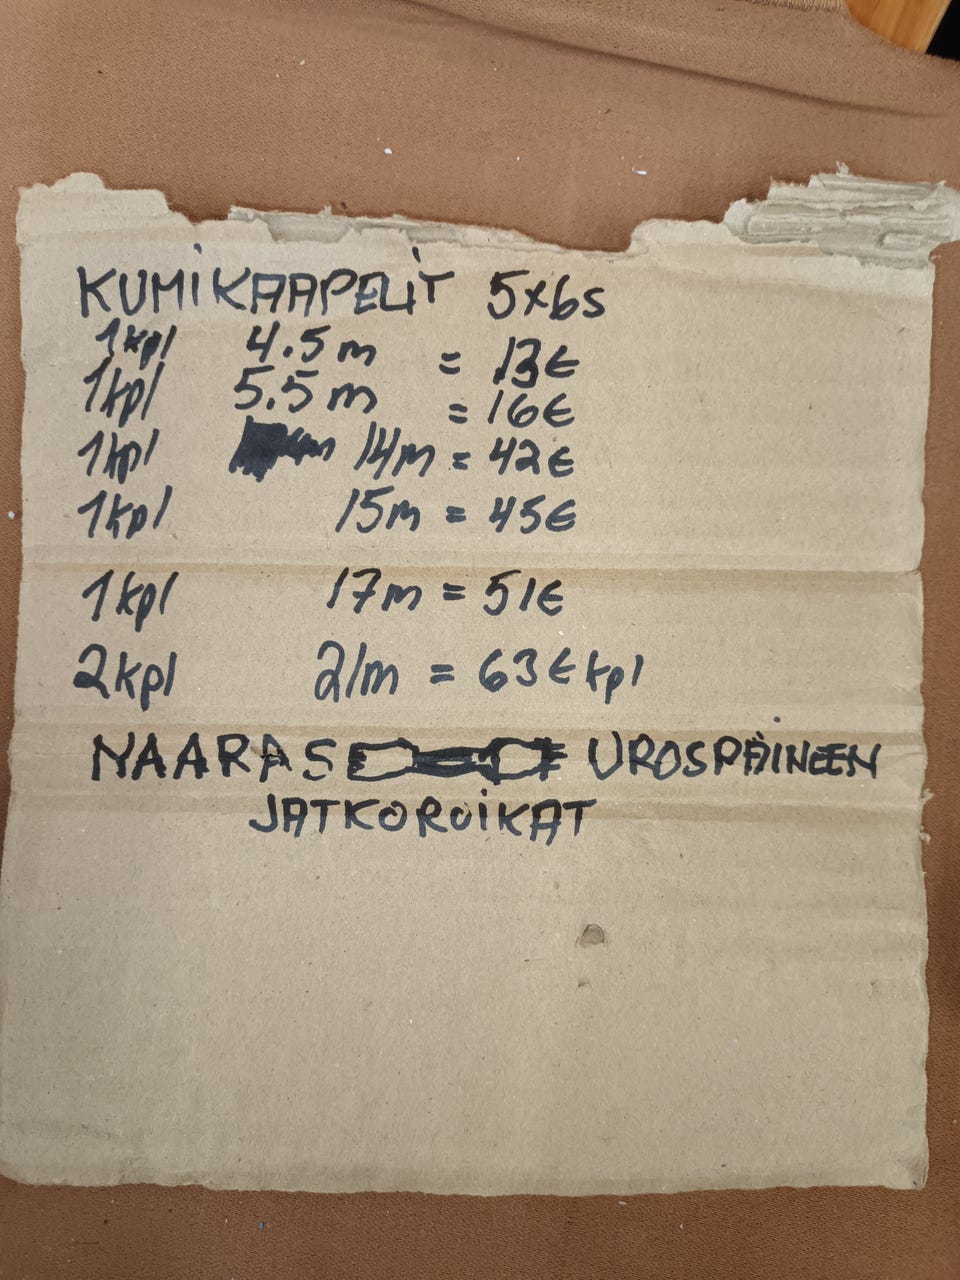 KUMIKAAPELIT 5x6s
1kpl 4.5m = 13€
1kpl 5.5m = 16€
1kpl 14m = 42€
1kpl 15m = 45€
1kpl 17m = 51€
2kpl 21m = 63€ kpl
NAARAS UROSPÄINEEN
JATKOROIKAT